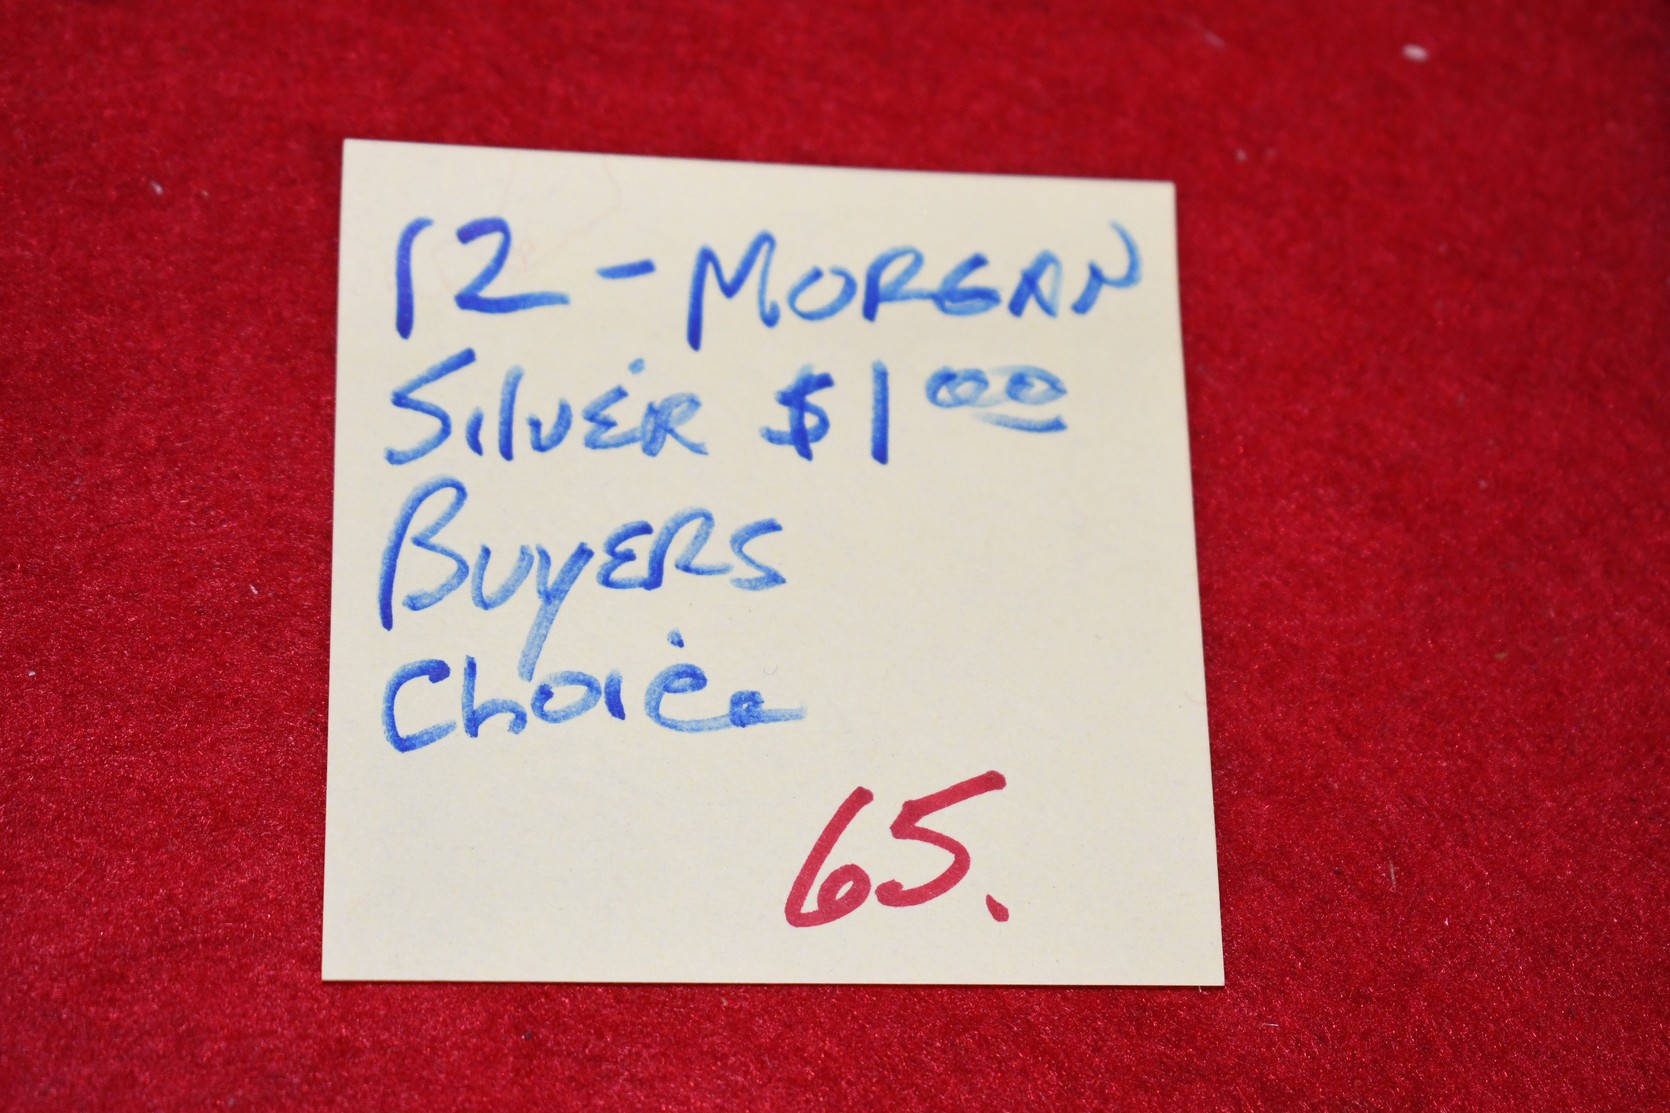 12 - MORGAN
SilvER $1 00
BuyERS
Choice
65.